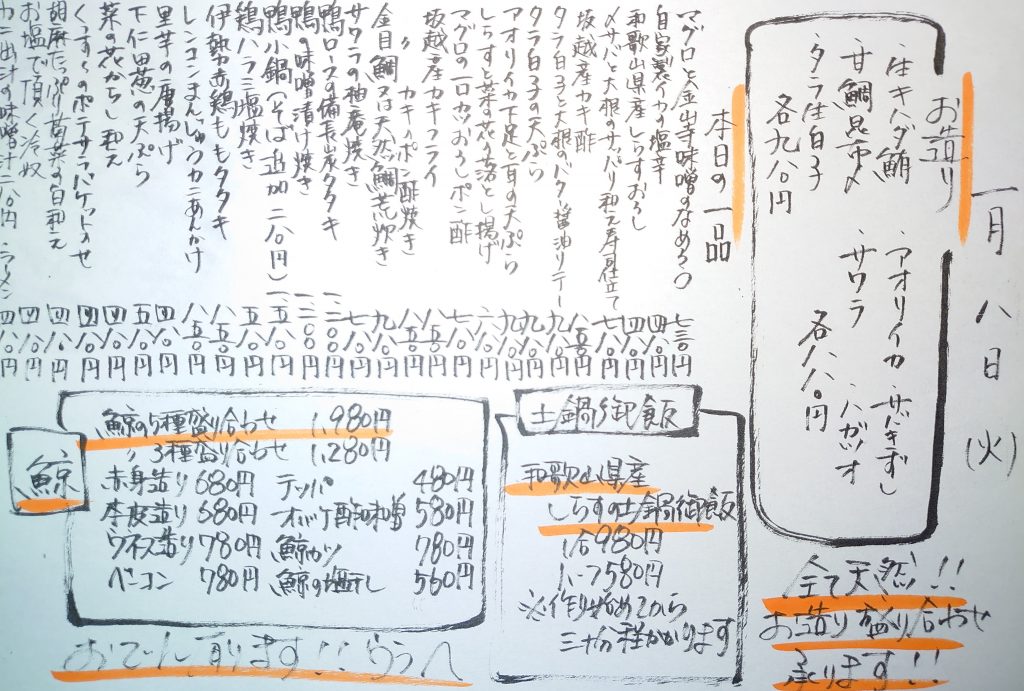 一月八日(火)
お造り
・生キハダ鮪
・甘鯛昆布〆
・タラ生白子
各九八〇円
・アオリイカ
・サワラ
・サバきずし
・ハガツオ
各八八〇円
全て天然!!
お造り盛り合わせ
承ります!!
本日の一品
マグロと金山寺味噌のなめろう 七三〇円
自家製イカの塩辛 四八〇円
和歌山県産しらすおろし 四八〇円
〆サバと大根のサッパリ和え寿司仕立て 七八〇円
坂越産カキ酢 八五〇円
タラ白子と大根のバター醤油ソテー 九八〇円
タラ白子の天ぷら 九八〇円
アオリイカ下足と耳の天ぷら 九八〇円
しらすと菜の花の落とし揚げ 六八〇円
マグロの一口カツおろしポン酢 七八〇円
坂越産カキフライ 八五〇円
〃 カキバターポン酢焼き 八五〇円
金目鯛又は天然鯛荒炊き 九八〇円
サワラの柚庵焼き 七八〇円
鴨ロースの備長炭タタキ
鴨の味噌漬け焼き
鴨小鍋(そば追加二八〇円)
鶏ハラミ塩焼き 五八〇円
伊勢赤鶏ももタタキ 八五〇円
レンコンまんじゅうカニあんかけ
里芋の唐揚げ 四八〇円
下仁田葱の天ぷら 五八〇円
菜の花からし和え 四八〇円
くずし〜のポテサラバケットのせ 四八〇円
胡麻たっぷり春菊の白和え 四八〇円
お塩で頂く冷奴 四八〇円
カニ出汁の味噌汁二八〇円 ラーメン 四八〇円
土鍋御飯
和歌山県産
しらすの土鍋御飯
1合980円
ハーフ580円
※作り始めてから
三十分程かかります
鯨
鯨の5種盛り合わせ 1,980円
〃3種盛り合わせ 1,280円
赤身造り 680円 テッパ 480円
本皮造り 680円 オバケ酢味噌 580円
ウネス造り 780円 鯨カツ 780円
ベーコン 780円 鯨の塩干し 560円